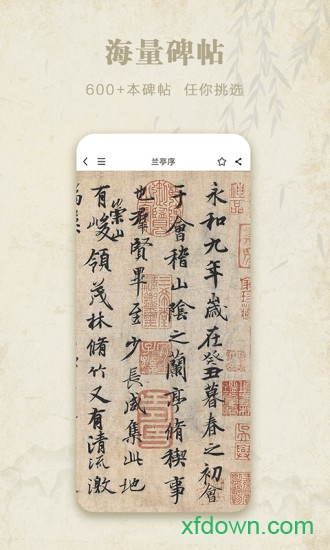 海量碑帖
600+本碑帖 任你挑选
兰亭序
永和九年歲在癸丑暮春之初會
于會稽山陰之蘭亭脩稧事
也羣賢畢至少長咸集此地
有崇山峻領茂林脩竹又有清流激
xfdown.com